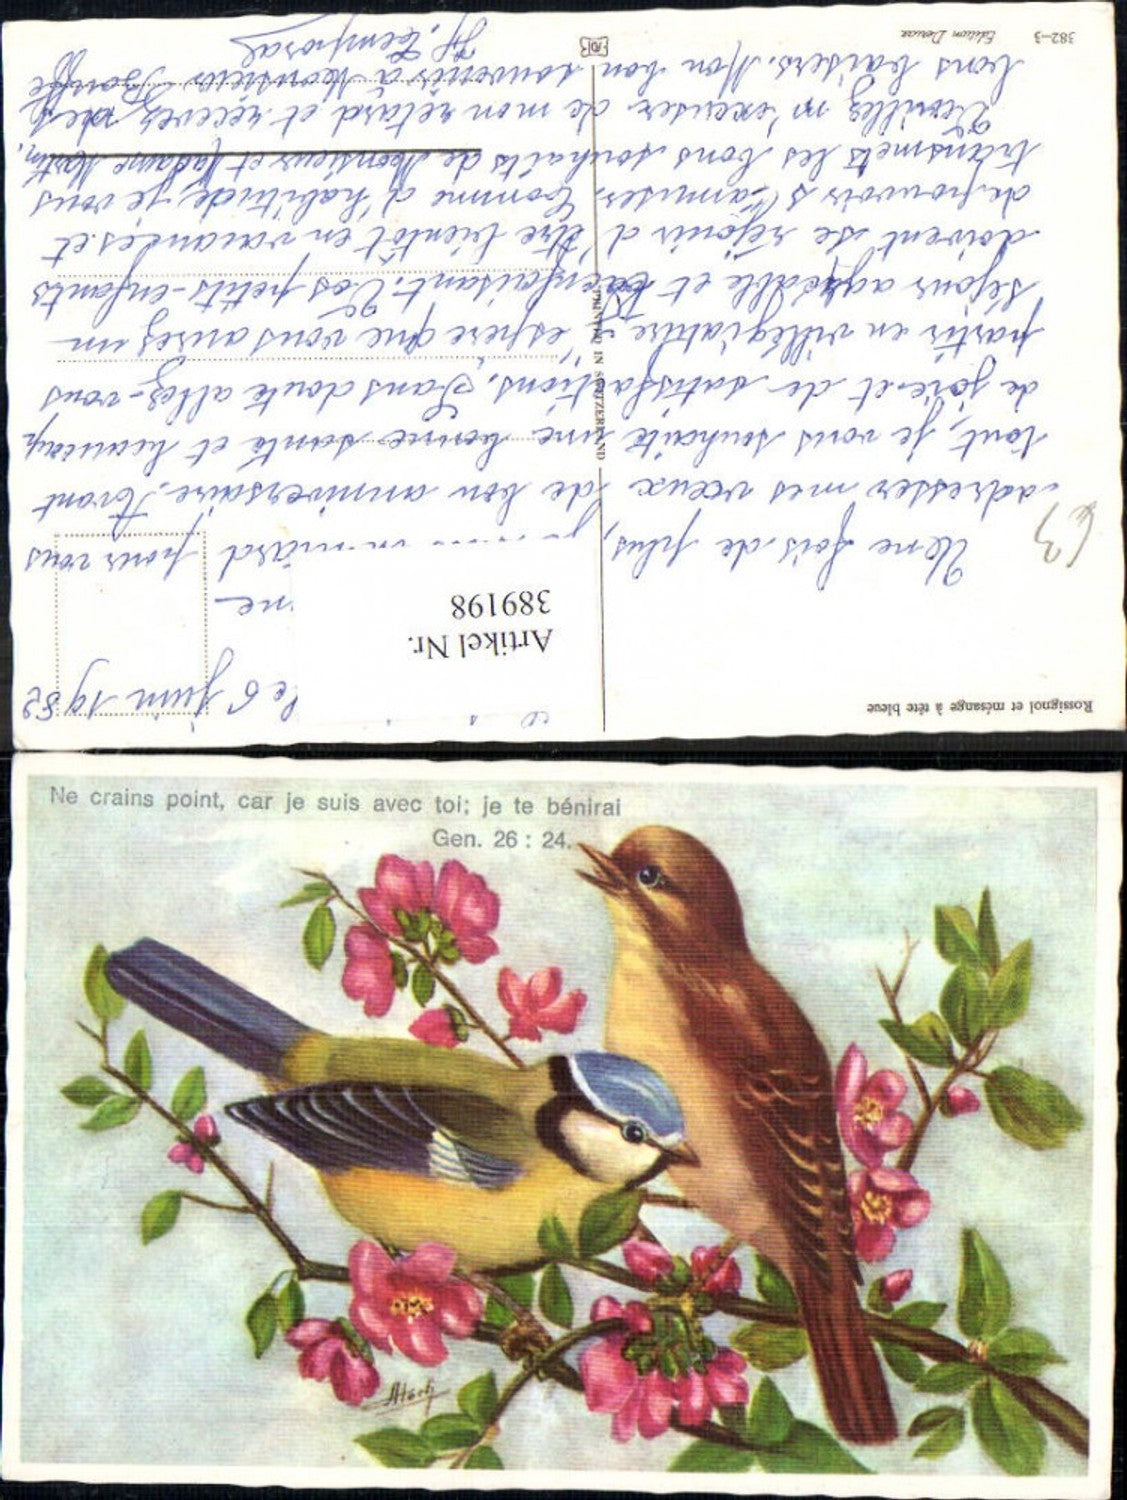 Rossignol et mésange à tête bleue
Artikel Nr.
389198
Le 6 juin 1982
Une fois de plus, pour vous
adresser mes vœux de bon anniversaire. Avant
tout, je vous souhaite une bonne santé et beaucoup
de joie et de satisfactions. Sans doute allez-vous
partir en villégiature. J'espère que vous aurez un
séjour agréable et bienfaisant. Vos petits-enfants
doivent se réjouir d'être bientôt en vacances et
de pouvoir s'amuser. Comme d'habitude, je vous
transmets les bons souhaits de Monsieur et Madame Martin.
Veuillez m'excuser de mon retard et recevez
bons baisers. Mon bon souvenir à Monsieur
PRINTED IN SWITZERLAND
382-3 Edition
Ne crains point, car je suis avec toi; je te bénirai
Gen. 26 : 24.